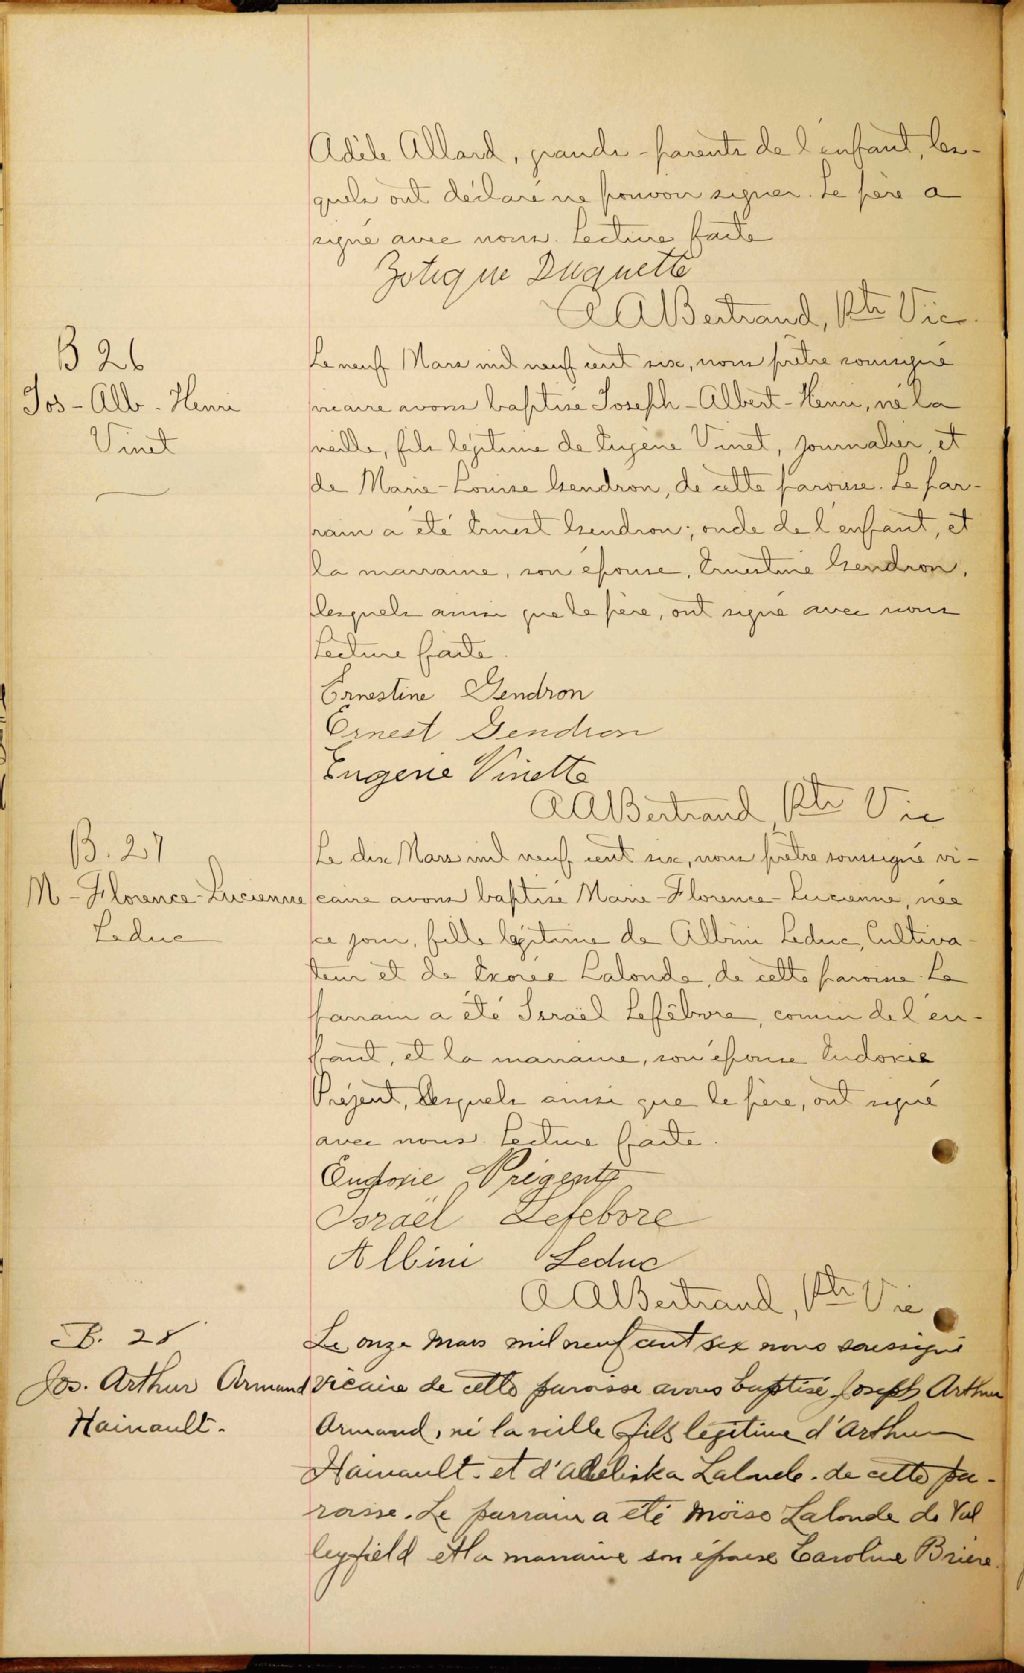 Adèle Allard, grands-parents de l'enfant, les-
quels ont déclaré ne pouvoir signer. Le père a
signé avec nous. Lecture faite
Zotique Duquette
A A Bertrand, Ptr Vic.
B 26
Jos-Alb-Henri
Vinet
Le neuf Mars mil neuf cent six, nous prêtre soussigné
vicaire avons baptisé Joseph-Albert-Henri, né la
veille, fils légitime de Eugène Vinet, journalier, et
de Marie-Louise Gendron, de cette paroisse. Le par-
rain a été Ernest Gendron, oncle de l'enfant, et
la marraine, son épouse, Ernestine Gendron,
lesquels ainsi que le père, ont signé avec nous
Lecture faite.
Ernestine Gendron
Ernest Gendron
Eugene Vinette
A A Bertrand, Ptr Vic
B. 27
M-Florence-Lucienne
Leduc
Le dix Mars mil neuf cent six, nous prêtre soussigné vi-
caire avons baptisé Marie-Florence-Lucienne, née
ce jour, fille légitime de Albini Leduc, Cultiva-
teur et de Exorée Lalonde, de cette paroisse. Le
parrain a été Israël Lefêbvre, cousin de l'en-
fant, et la marraine, son épouse Eudoxie
Préjent, lesquels ainsi que le père, ont signé
avec nous. Lecture faite.
Eudoxie Prégent
Israël Lefebvre
Albini Leduc
A A Bertrand, Ptr Vic
B. 28
Jos. Arthur Armand
Hainault.
Le onze Mars mil neuf cent six nous soussigné
vicaire de cette paroisse avons baptisé Joseph Arthur
Armand, né la veille fils légitime d'Arthur
Hainault et d'Adeliska Lalonde de cette pa-
roisse. Le parrain a été Moïse Lalonde de Val
leyfield et la marraine son épouse Caroline Brière.